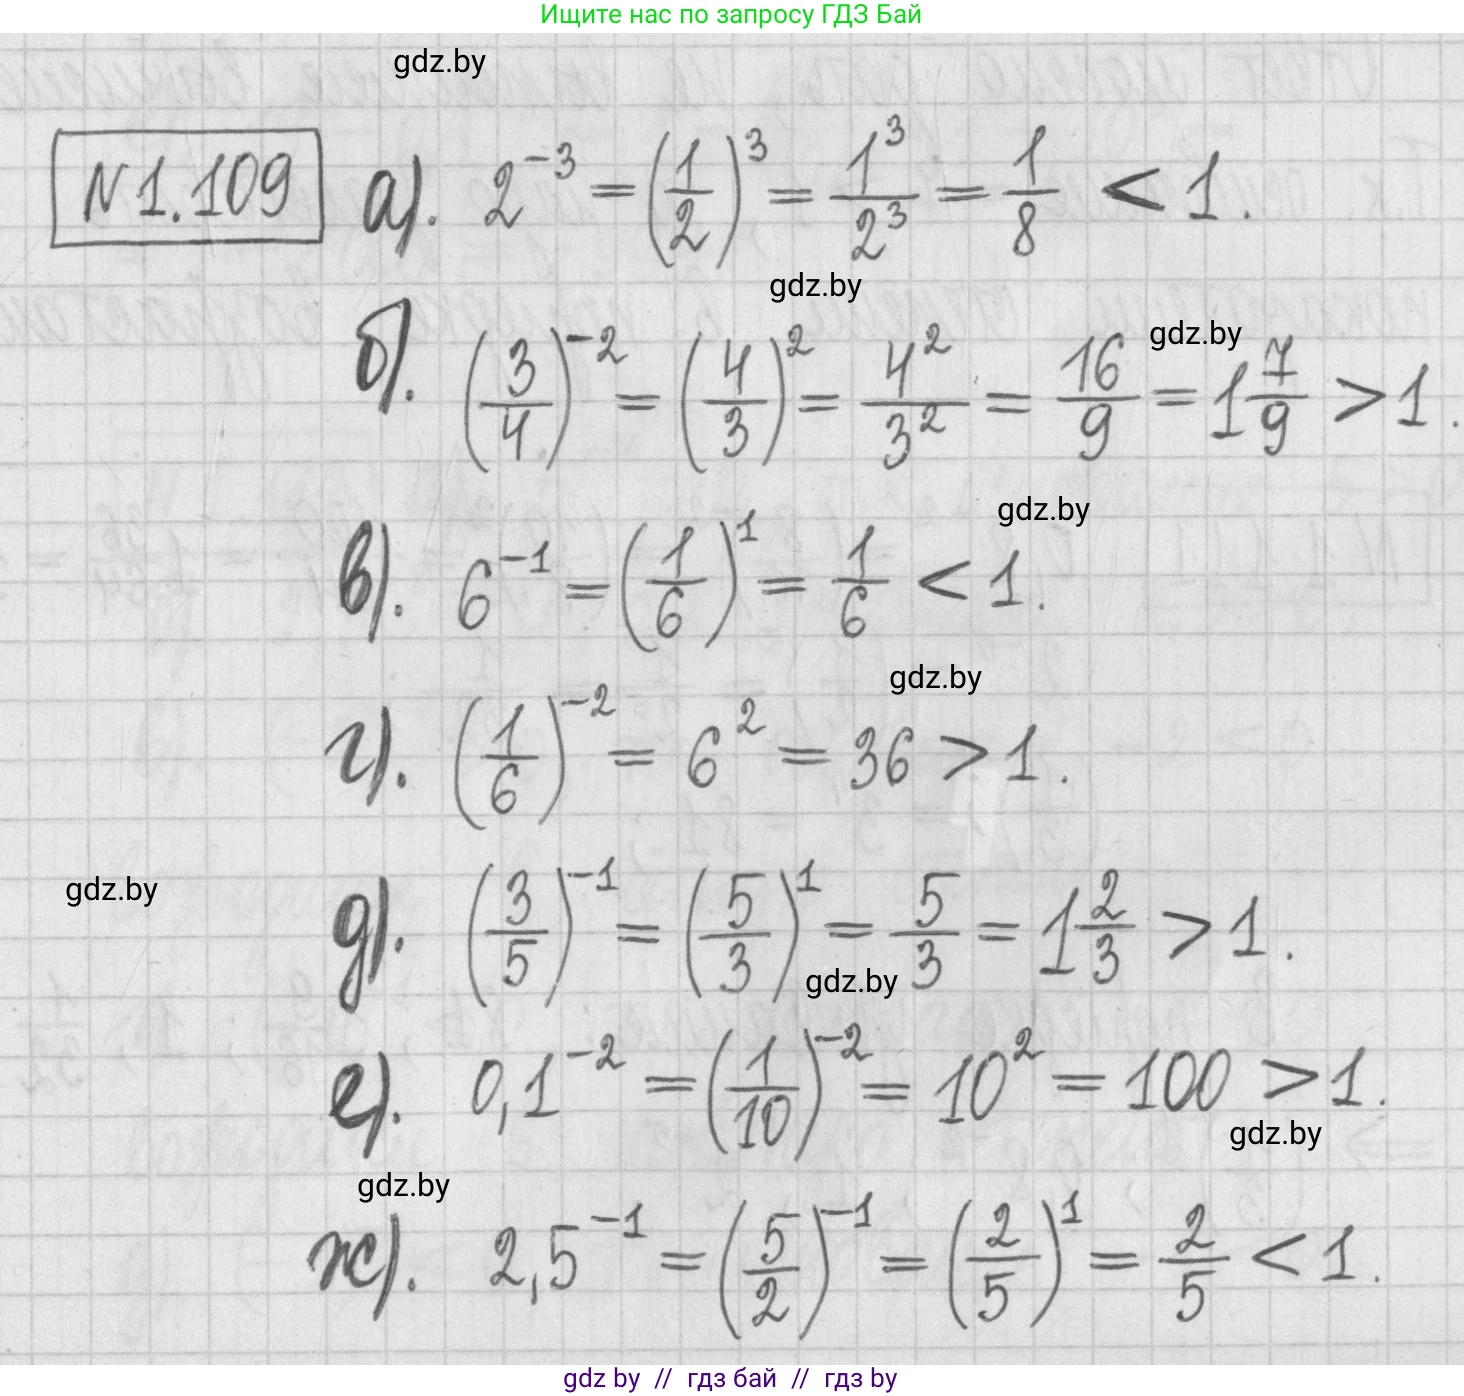 Ищите нас по запросу ГДЗ Бай
gdz.by
N 1.109 а). 2^{-3} = (1/2)^3 = 1^3/2^3 = 1/8 < 1.
gdz.by
gdz.by
б). (3/4)^{-2} = (4/3)^2 = 4^2/3^2 = 16/9 = 1 7/9 > 1.
gdz.by
в). 6^{-1} = (1/6)^1 = 1/6 < 1.
gdz.by
г). (1/6)^{-2} = 6^2 = 36 > 1.
gdz.by
д). (3/5)^{-1} = (5/3)^1 = 5/3 = 1 2/3 > 1.
gdz.by
е). 0,1^{-2} = (1/10)^{-2} = 10^2 = 100 > 1.
gdz.by
gdz.by
ж). 2,5^{-1} = (5/2)^{-1} = (2/5)^1 = 2/5 < 1.
gdz by // гдз бай // гдз by